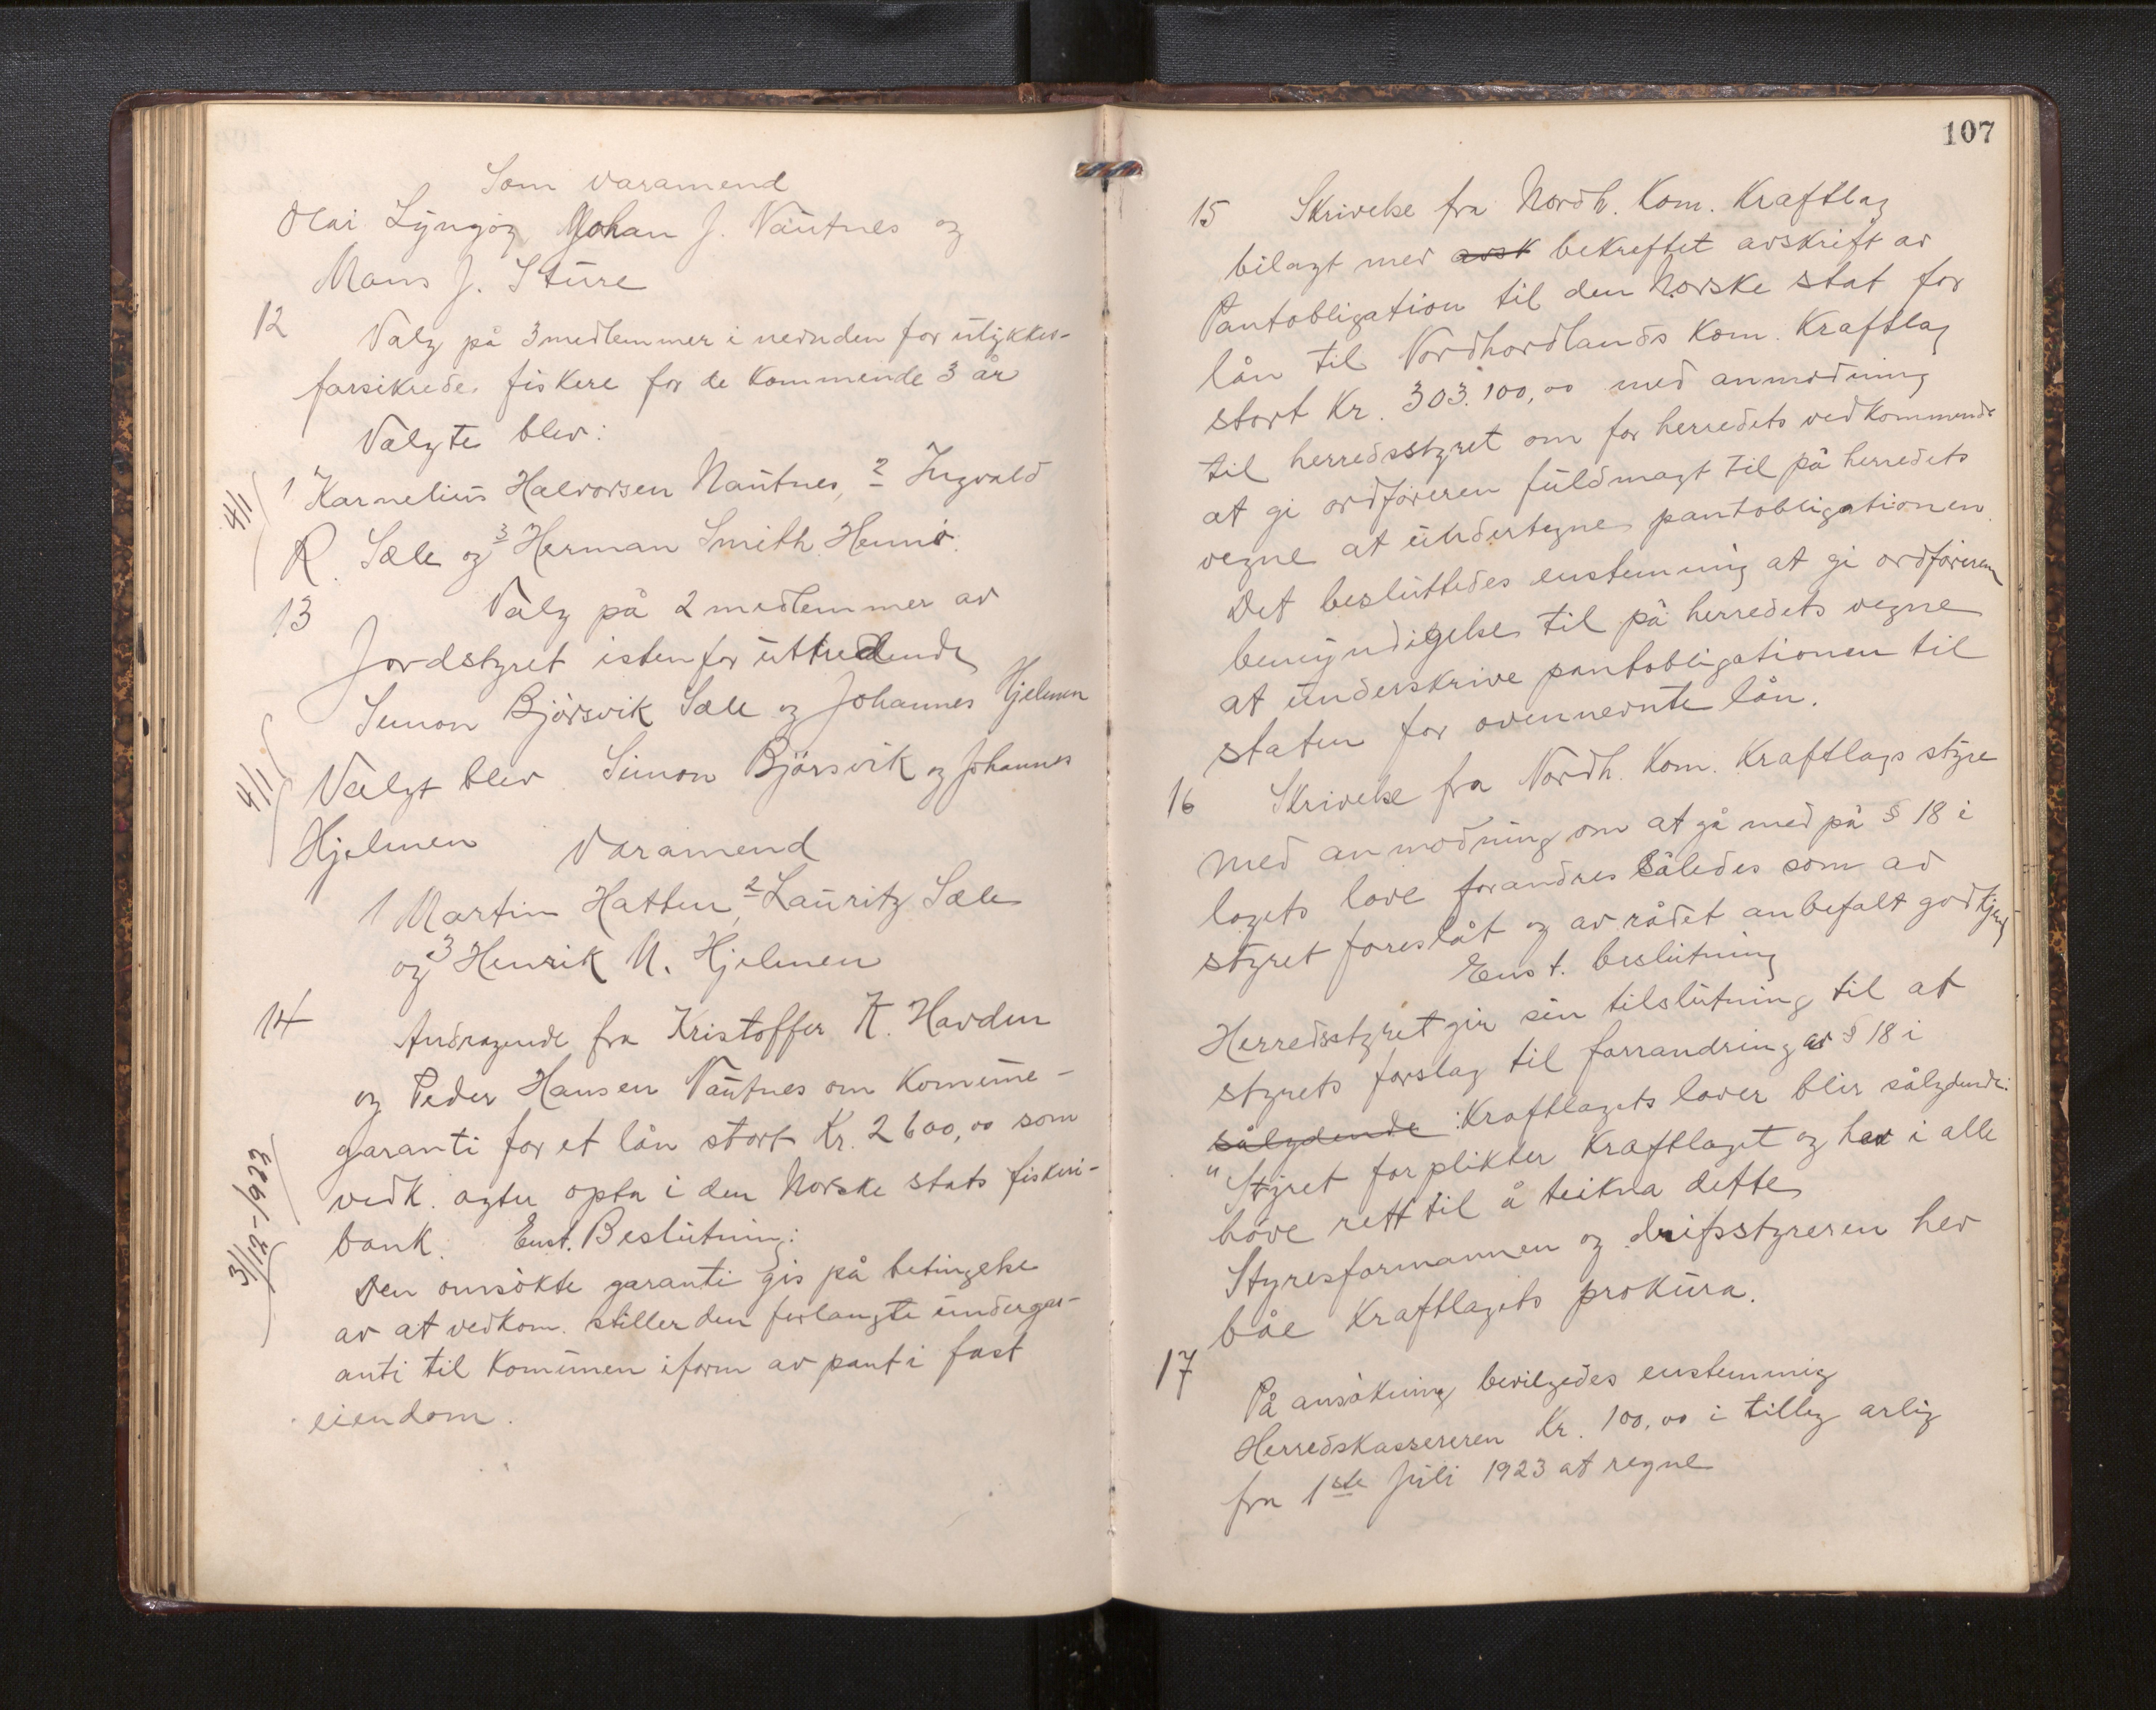 Som varamend
Olai Lyngöy Johan J. Nautnes og
Mons J. Sture
12 Valg på 3 medlemmer i nevnden for ulykkes-
forsikrede fiskere for de kommende 3 år
Valgte blev:
4/1 1 Karnelius Halvorsen Nautnes, 2 Ingvald
R. Sæle og 3 Herman Smith Hennö.
13 Valg på 2 medlemmer av
Jordstyret istenfor uttredende
Simon Björsvik Sæle og Johannes Hjelmen
4/1 Valgt blev Simon Björsvik og Johannes
Hjelmen Varamend
1 Martin Hatten, 2 Lauritz Sæle
og 3 Henrik N. Hjelmen
14 Andragende fra Kristoffer K. Havden
og Peder Hansen Nautnes om Komune-
garanti for et lån stort Kr. 2600,00 som
vedk. agter opta i den Norske stats fiskeri-
bank. Enst. Beslutning:
3/12-1923
Den omsökte garanti gis på betingelse
av at vedkom. stiller den forlangte undergar-
anti til Komunen iform av pant i fast
eiendom.
107
15 Skrivelse fra Nordh. Kom. Kraftlag
bilagt med avsk bekreftet avskrift av
Pantobligation til den Norske stat for
lån til Nordhordlands Kom. Kraftlag
stort Kr. 303.100,00 med anmodning
til herredsstyret om for herredets vedkommende
at gi ordföreren fuldmagt til på herredets
vegne at undertegne pantobligationen.
Det besluttedes enstemmig at gi ordföreren
bemyndigelse til på herredets vegne
at underskrive pantobligationen til
staten for ovennevnte lån.
16 Skrivelse fra Nordh. Kom. Kraftlags styre
med anmodning om at gå med på § 18 i
lagets love forandres således som av
styret foreslåt og av rådet anbefalt godkjent
Enst. beslutning
Herredsstyret gir sin tilslutning til at
styrets forslag til forrandring av § 18 i
sålydende: Kraftlagets lover blir sålydende:
"Styret forplikter Kraftlaget og hev i alle
höve rett til å teikna dette
Styresformannen og drifsstyreren hev
båe Kraftlagets prokura.
17 På ansökning bevilgedes enstemmig
Herredskassereren Kr. 100,00 i tilleg årlig
fra 1ste Juli 1923 at regne